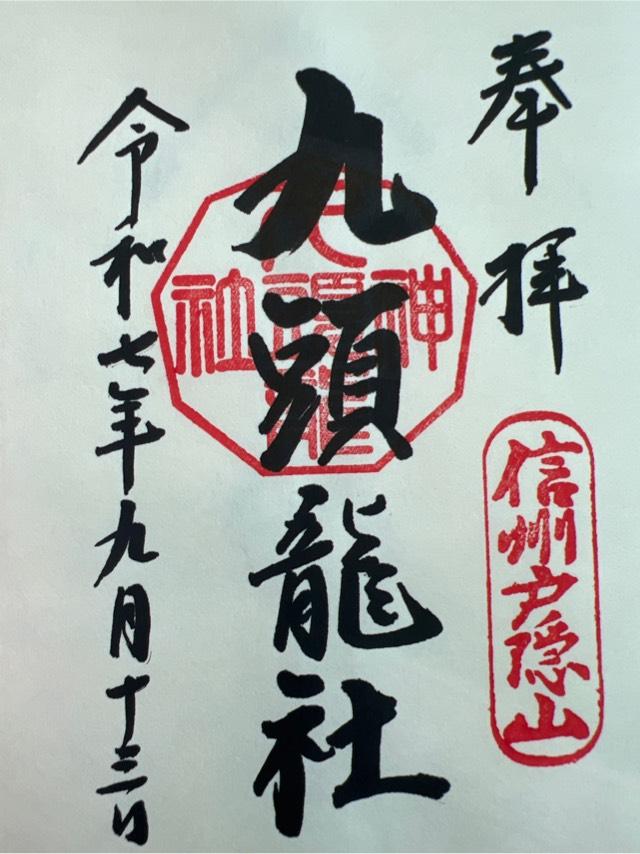 奉拝
信州戸隠山
九頭龍社
神社
令和七年九月十三日